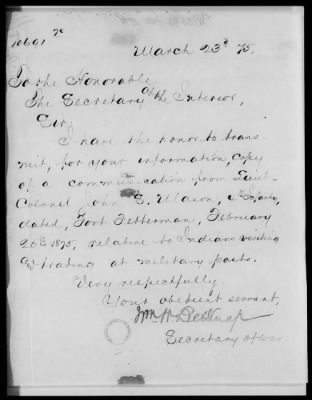 10691 
March 23d 75.
To the Honorable,
The Secretary of the Interior,
Sir,
I have the honor to trans-
mit, for your information, copy
of a communication from Lieut.
Colonel John S. Mason, 4th Infantry,
dated, Fort Fetterman, February
20th 1875, relative to Indians visiting
& trading at military posts.
Very respectfully.
Your obedient servant,
Wm W Belknap
Secretary of war